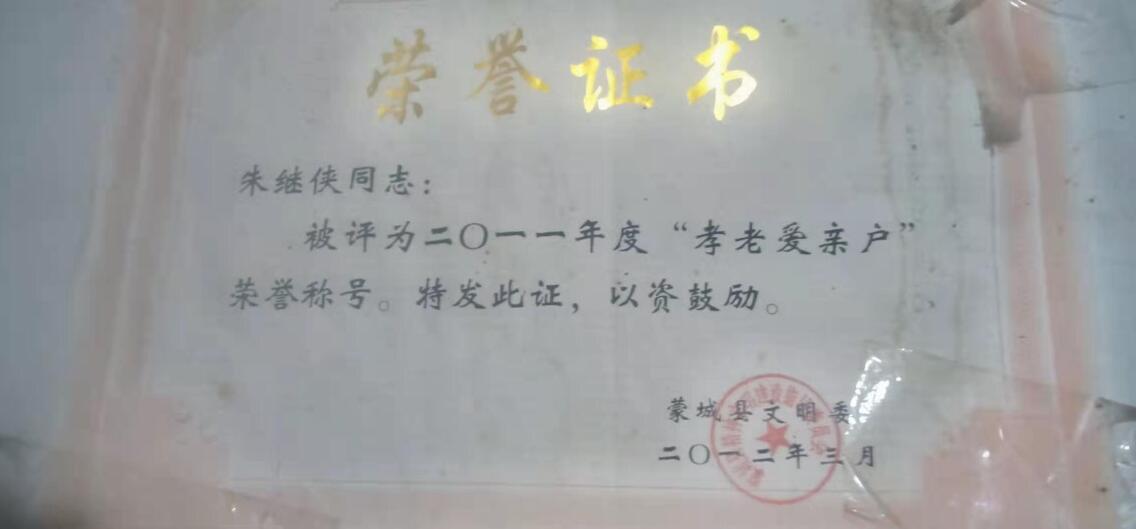 荣誉证书
朱继侠同志：
被评为二〇一一年度“孝老爱亲户”
荣誉称号。特发此证，以资鼓励。
蒙城县文明委
二〇一二年三月